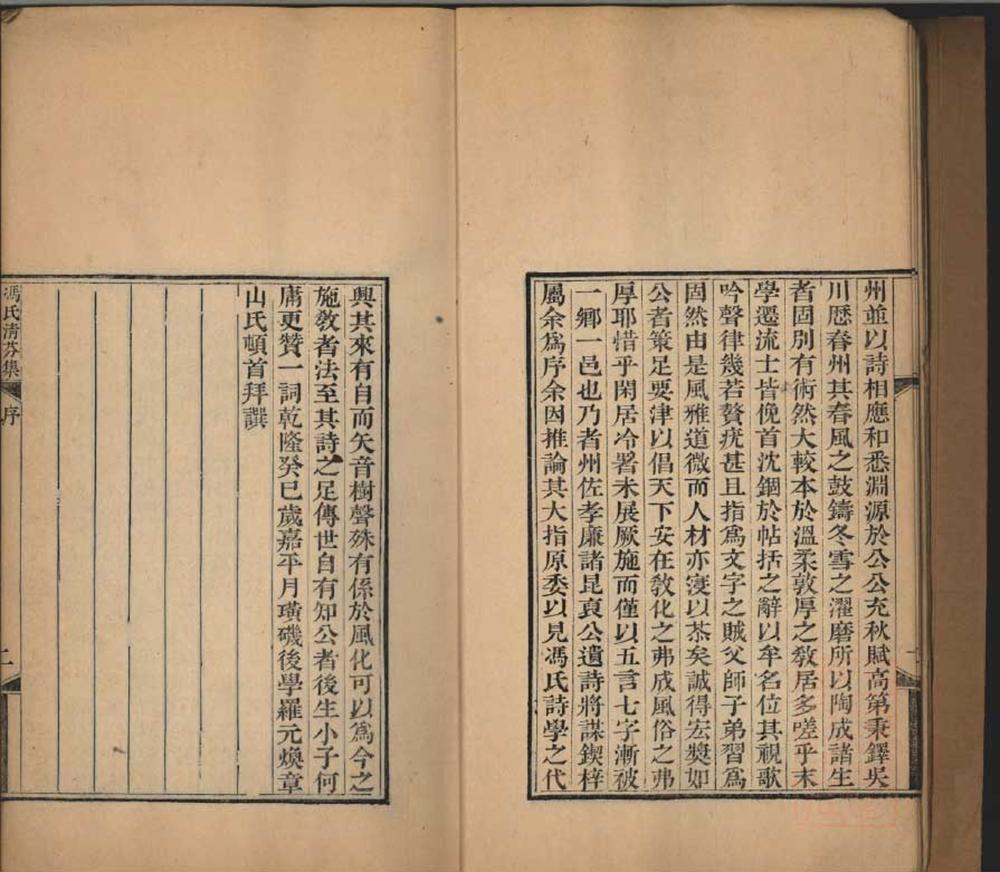 州並以詩相應和悉淵源於公公充秋賦高第秉鐸吳
川歷春州其春風之鼓鑄冬雪之濯磨所以陶成諸生
者固別有術然大較本於溫柔敦厚之教居多嗟乎末
學遷流士皆俛首沈錮於帖括之辭以牟名位其視歌
吟聲律幾若贅疣甚且指為文字之賊父師子弟習為
固然由是風雅道微而人材亦寖以苶矣誠得宏獎如
公者策足要津以倡天下安在教化之弗成風俗之弗
厚耶惜乎閑居冷署未展厥施而僅以五言七字漸被
一鄉一邑也乃者州佐孝廉諸昆裒公遺詩將謀鍥梓
屬余為序余因推論其大指原委以見馮氏詩學之代
興其來有自而矢音樹聲殊有係於風化可以為今之
施教者法至其詩之足傳世自有知公者後生小子何
庸更贊一詞乾隆癸巳歲嘉平月璜磯後學羅元煥章
山氏頓首拜譔
馮氏清芬集
序
二